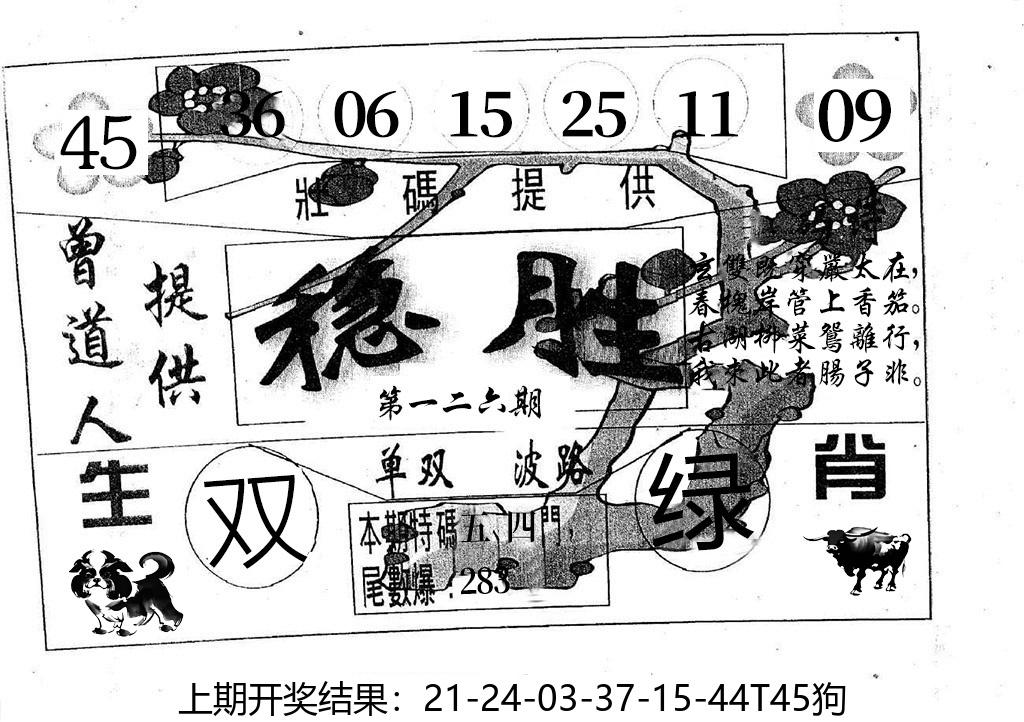 45 36 06 15 25 11 09
壯碼提供
曾道人
提供
特
玄雙既穿嚴太在，
春愧岸管上香茄。
右湖柳菜鴛離行，
我來此者腸子非。
稳胜
第一二六期
单双 波路
生
双
绿
肖
本期特碼五、四門，
尾數爆：283
上期开奖结果：21-24-03-37-15-44T45狗